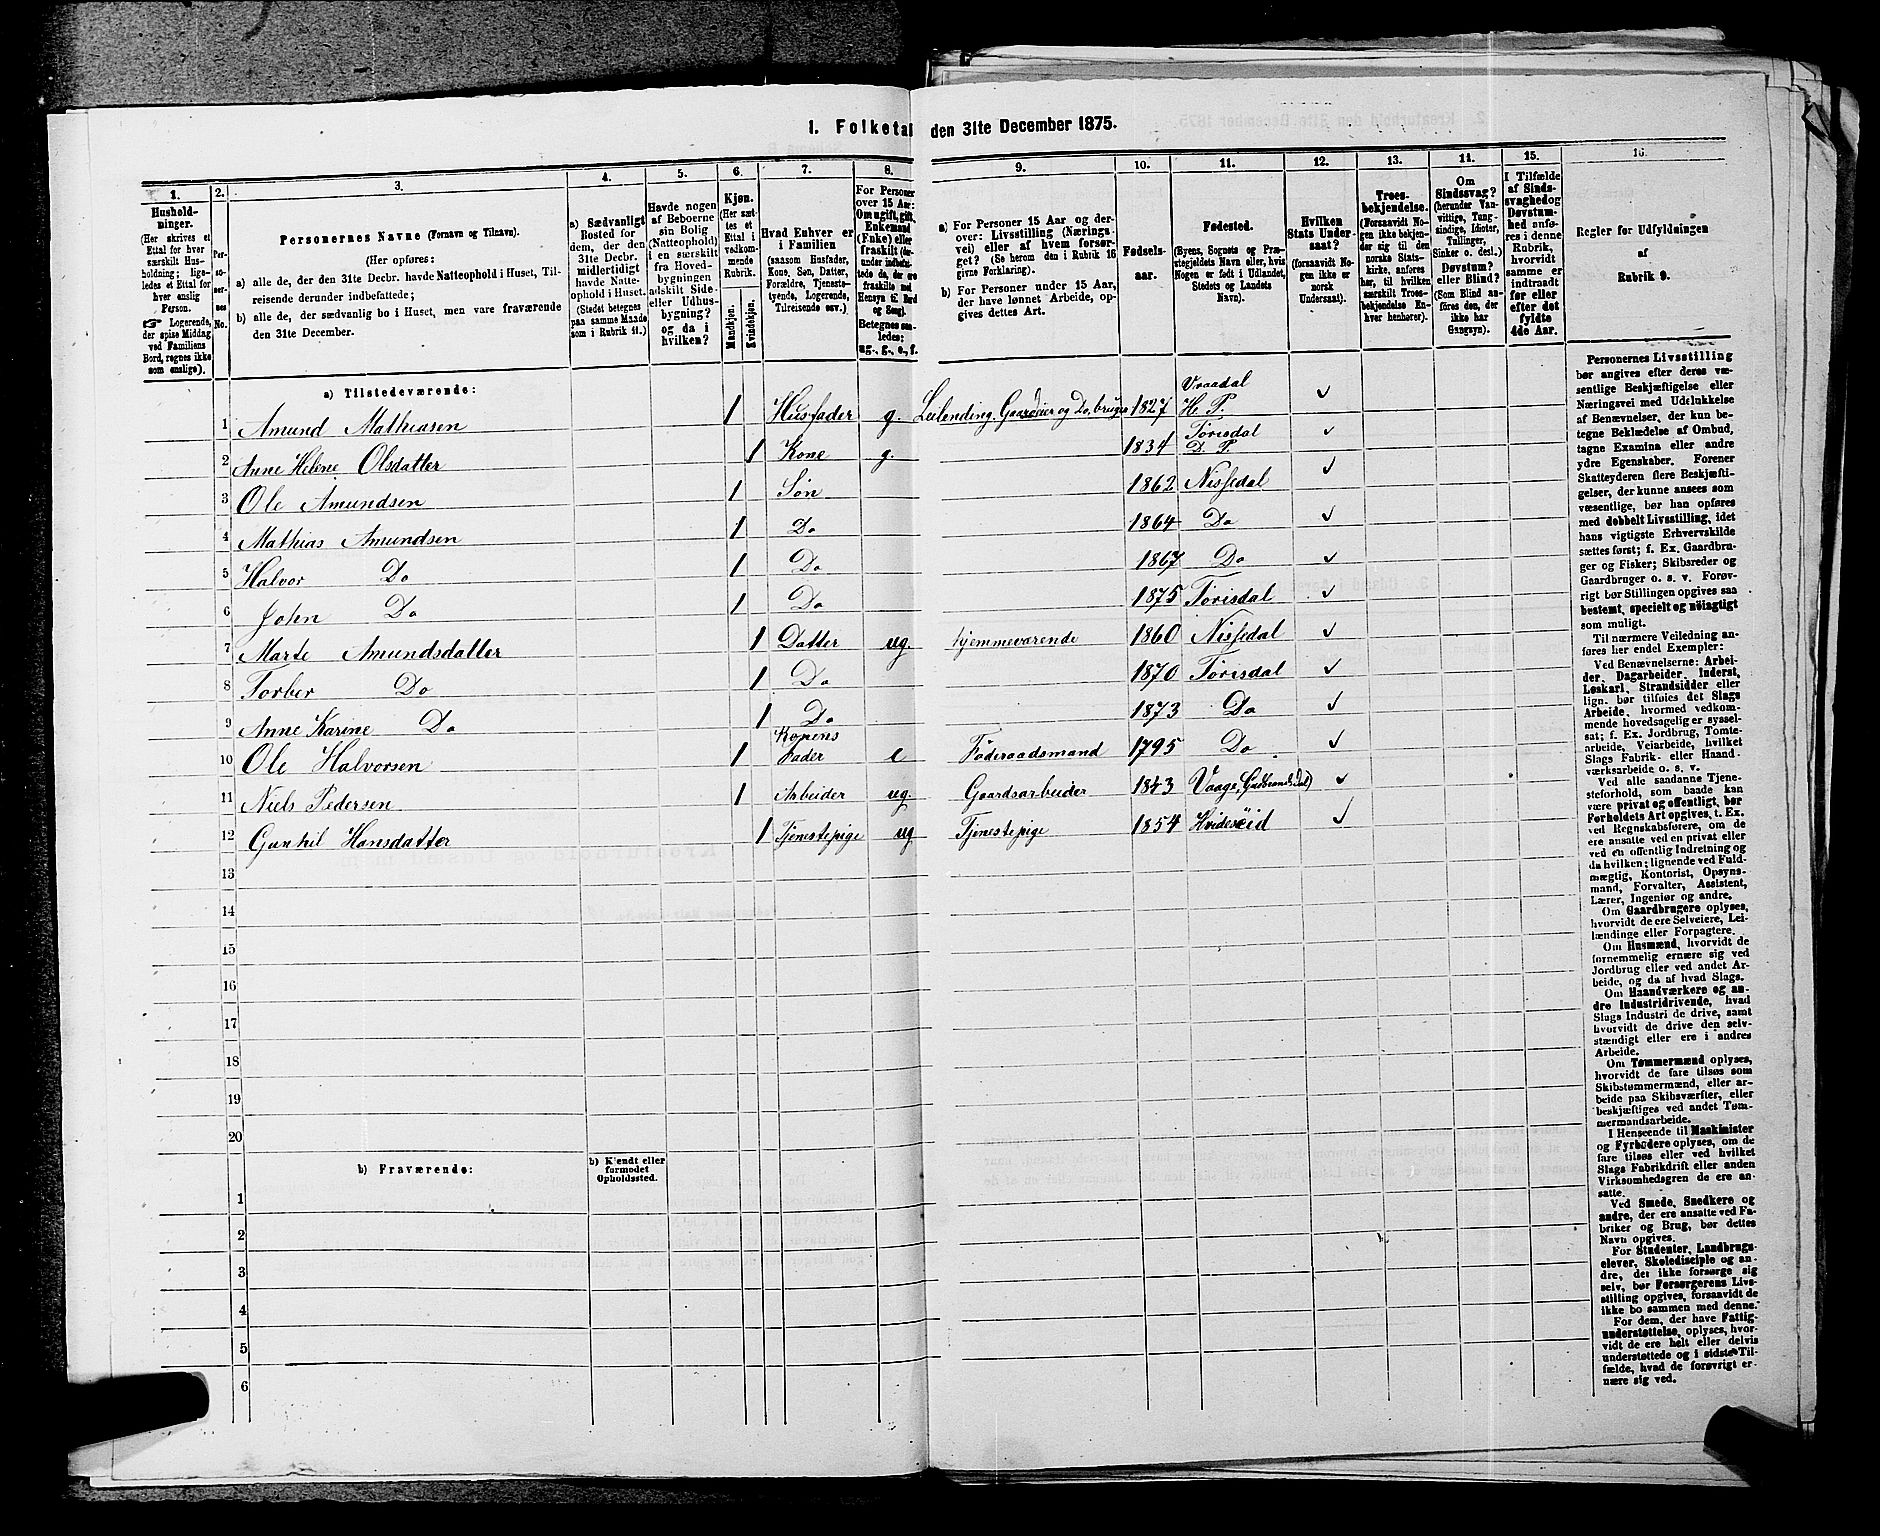 1. Folketal den 31te December 1875.
1.
Hushold-
ninger.
(Her skrives et
Ettal for hver
særskilt Hus-
holdning; lige-
ledes et Ettal for
hver enslig
Person.
☞ Logerende,
der spise Middag
ved Familiens
Bord, regnes ikke
som enslige).
2.
Per-
so-
ner-
nes
No.
3.
Personernes Navne (Fornavn og Tilnavn).
(Her opføres:
a) alle de, der den 31te Decbr. havde Natteophold i Huset, Til-
reisende derunder indbefattede;
b) alle de, der sædvanlig bo i Huset, men vare fraværende
den 31te December.
4.
a) Sædvanligt
Bosted for
dem, der den
31te Decbr.
midlertidigt
havde Natte-
ophold i Huset.
(Stedet betegnes
paa samme Maade
som i Rubrik 11.)
5.
Havde nogen
af Beboerne
sin Bolig
(Natteophold)
i en særskilt
fra Hoved-
bygningen
adskilt Side-
eller Udhus-
bygning?
og da i
hvilken?
6.
Kjøn.
(Her sæt-
tes et
Ettal i
vedkom-
mende
Rubrik.
Mandkjøn.
Kvindekjøn.
7.
Hvad Enhver er
i Familien
(saasom Husfader,
Kone, Søn, Datter,
Forældre, Tjeneste-
tyende, Logerende,
Tilreisende osv.)
8.
For Personer
over 15 Aar:
Om ugift, gift,
Enkemand
(Enke) eller
fraskilt (der-
under indbefat-
tede de, der ere
fraskilte med
Hensyn til Bord
og Seng).
Betegnes saa-
ledes:
ug., g., e., f.
9.
a) For Personer 15 Aar og der-
over: Livsstilling (Nærings-
vei) eller af hvem forsør-
get? (Se herom den i Rubrik 16
givne Forklaring).
b) For Personer under 15 Aar,
der have lønnet Arbeide, op-
gives dettes Art.
10.
Fødsels-
aar.
11.
Fødested.
(Byens, Sognets og Præ-
stegjeldets Navn eller, hvis
Nogen er født i Udlandet,
Stedets og Landets
Navn).
12.
Hvilken
Stats Under-
saat?
(forsaavidt No-
gen ikke er
norsk
Undersaat).
13.
Troes-
bekjendelse.
(Forsaavidt No-
gen ikke bekjen-
der sig til den
norske Stats-
kirke, anføres
her, til hvilken
særskilt Troes-
bekjendelse En-
hver henhører).
11.
Om
Sindssvag?
(herunder Van-
vittige, Tung-
sindige, Idioter,
Tullinger,
Sinker o. desl.)
Døvstum?
eller Blind?
(Som Blind an-
føres den, der
ikke har
Gangsyn).
15.
I Tilfælde
af Sinds-
svaghed og
Døvstum-
hed anfø-
res i denne
Rubrik,
hvorvidt
samme er
indtraadt
før eller
efter det
fyldte
4de Aar.
16.
Regler for Udfyldningen
af
Rubrik 9.
a) Tilstedeværende:
1 Amund Mathiasen 1 Husfader g. Leilending, Gaardeier og Do. bruger 1827 Vraadal H. P. ✓
2 Anne Helene Olsdatter 1 Kone g. 1834 Tørisdal D. P. ✓
3 Ole Amundsen 1 Søn 1862 Nissedal ✓
4 Mathias Amundsen 1 Do 1864 Do ✓
5 Halvor Do 1 Do 1867 Do ✓
6 John Do 1 Do 1875 Tørisdal ✓
7 Marte Amundsdatter 1 Datter ug. hjemmeværende 1860 Nissedal ✓
8 Torber Do 1 Do 1870 Tørisdal ✓
9 Anne Karine Do 1 Do 1873 Do ✓
10 Ole Halvorsen 1 Konens Fader e Føderaadsmand 1795 Do ✓
11 Niels Pedersen 1 Arbeider ug. Gaardsarbeider 1843 Vaage, (Gudbrandsdal) ✓
12 Gunhil Hansdatter 1 Tjenestepige ug Tjenestepige 1854 Hvideseid ✓
13
14
15
16
17
18
19
20
b) Fraværende:
b) Kjendt eller
formodet
Opholdssted.
1
2
3
4
5
6
Personernes Livsstilling
bør angives efter deres væ-
sentlige Beskjæftigelse eller
Næringsvei med Udelukkelse
af Benævnelser, der kun be-
tegne Beklædelse af Ombud,
tagne Examina eller andre
ydre Egenskaber. Forener
Skatteyderen flere Beskjæfti-
gelser, der kunne ansees som
væsentlige, bør han opføres
med dobbelt Livsstilling, idet
hans vigtigste Erhvervskilde
sættes først; f. Ex. Gaardbru-
ger og Fisker; Skibsreder og
Gaardbruger o. s. v. Forøv-
rigt bør Stillingen opgives saa
bestemt, specielt og nöiagtigt
som muligt.
Til nærmere Veiledning an-
føres her endel Exempler:
Ved Benævnelserne: Arbei-
der, Dagarbeider, Inderst,
Løskarl, Strandsidder eller
lign. bør tilføies det Slags
Arbeide, hvormed vedkom-
mende hovedsagelig er syssel-
sat; f. Ex. Jordbrug, Tomte-
arbeide, Veiarbeide, hvilket
Slags Fabrik- eller Haand-
værksarbeide o. s. v.
Ved alle saadanne Tjene-
steforhold, som baade kan
være privat og offentlig, bør
Forholdets Art opgives, t. Ex.
ved Regnskabsførere, om de
ere ansatte ved en privat eller
ved en offentlig Indretning og
da hvilken; lignende ved Fuld-
mægtig, Kontorist, Opsyns-
mand, Forvalter, Assistent,
Lærer, Ingeniør og andre.
Om Gaardbrugere oplyses,
hvorvidt de ere Selveiere, Lei-
lændinge eller Forpagtere.
Om Husmænd, hvorvidt de
fornemmelig ernære sig ved
Jordbrug eller ved andet Ar-
beide, og da af hvad Slags.
Om Haandværkere og an-
dre Industridrivende, hvad
Slags Industri de drive, samt
hvorvidt de drive den selv-
stændigt eller ere i andres
Arbeide.
Om Tømmermænd oplyses,
hvorvidt de fare tilsøs som
Skibstømmermænd, eller ar-
beide paa Skibsværfter, eller
beskjæftiges ved andet Tøm-
mermandsarbeide.
I Henseende til Maskinister
og Fyrbødere oplyses, om de
fare tilsøs eller ved hvilket
Slags Fabrikdrift eller anden
Virksomhedsgren de ere an-
satte.
Ved Smede, Snedkere og
andre, der ere ansatte ved Fa-
briker og Brug, bør dettes
Navn opgives.
For Studenter, Landbrugs-
elever, Skoledisciple og an-
dre, der ikke forsørge sig
selv, bør Forsørgerens Livs-
stilling opgives, forsaavidt de
ikke bo sammen med denne.
For dem, der have Fattig-
understøttelse, oplyses, hvor-
vidt de ere helt eller delvis
understøttede og i sidste Til-
fælde, hvad de forøvrigt er-
nære sig ved.